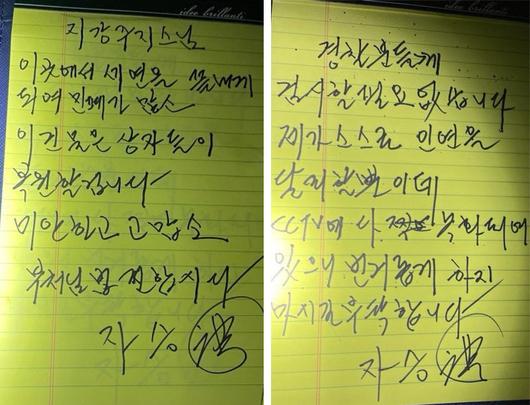 idee brillanti
지강주지스님
이곳에서 세연을 끝내게
되여 민폐가 많소
이 건물은 상자들이
복원할겁니다
미안하고 고맙소
부처님법 전합시다
자승
idee brillanti
경찰분들께
검시할 필요 없습니다
제가 스스로 인연을
달리할뿐이데
CCTV에 다 녹화되여
있으니 번거롭게 하지
마시길 부탁합니다
자승